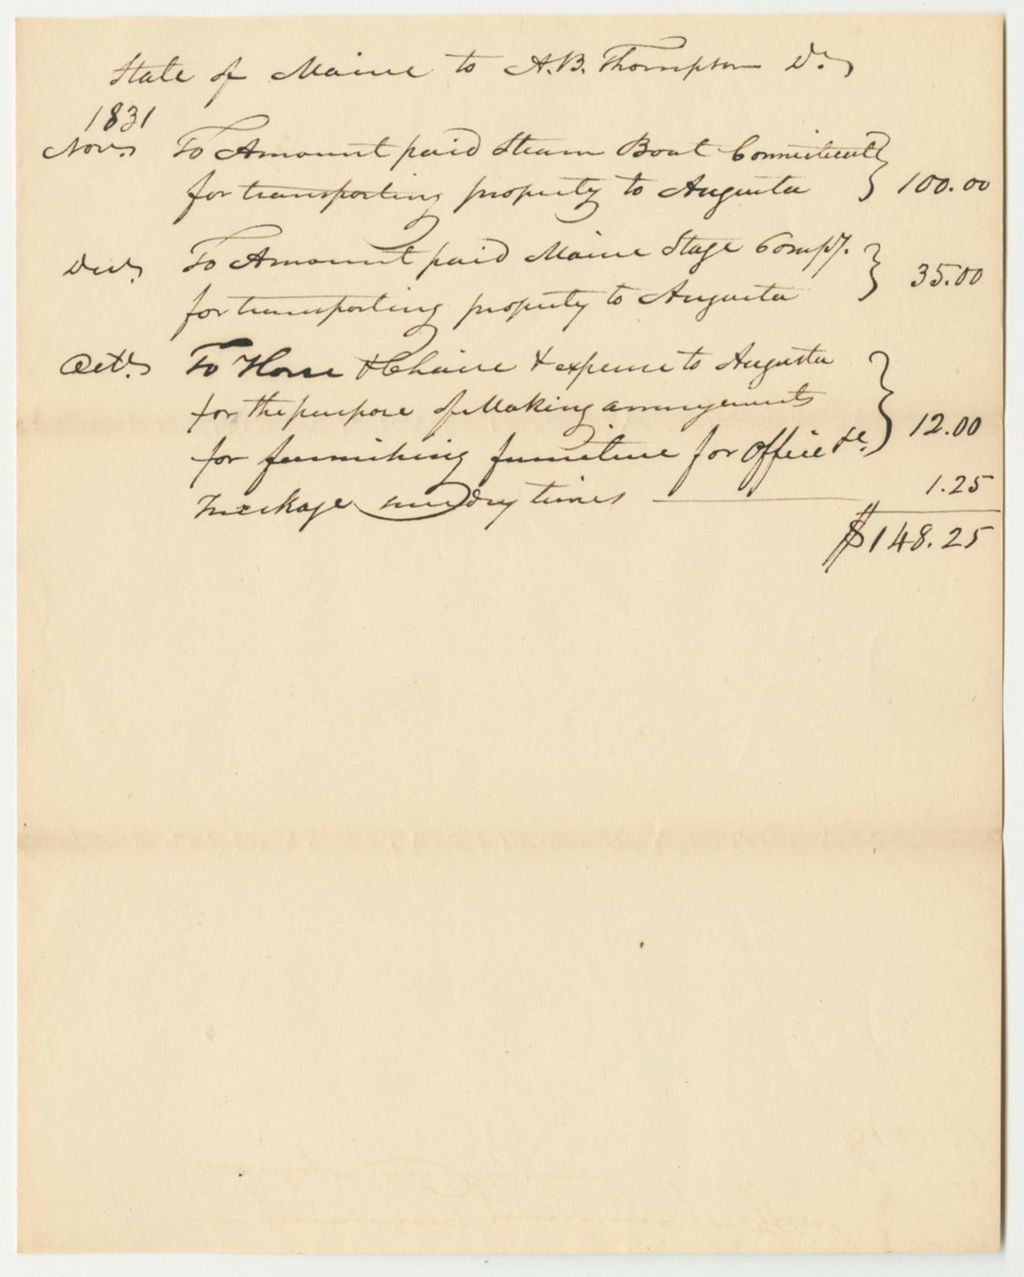 State of Maine to A.B. Thompson Dr.
1831
Nov. To Amount paid Steam Boat Connecticut
for transporting property to Augusta } 100.00
Dec. To Amount paid Maine Stage Compy.
for transporting property to Augusta } 35.00
Oct. To Horse & Chaise & expense to Augusta
for the purpose of Making arrangements
for furnishing furniture for Office &c. } 12.00
Truckage sundry times 1.25
$148.25